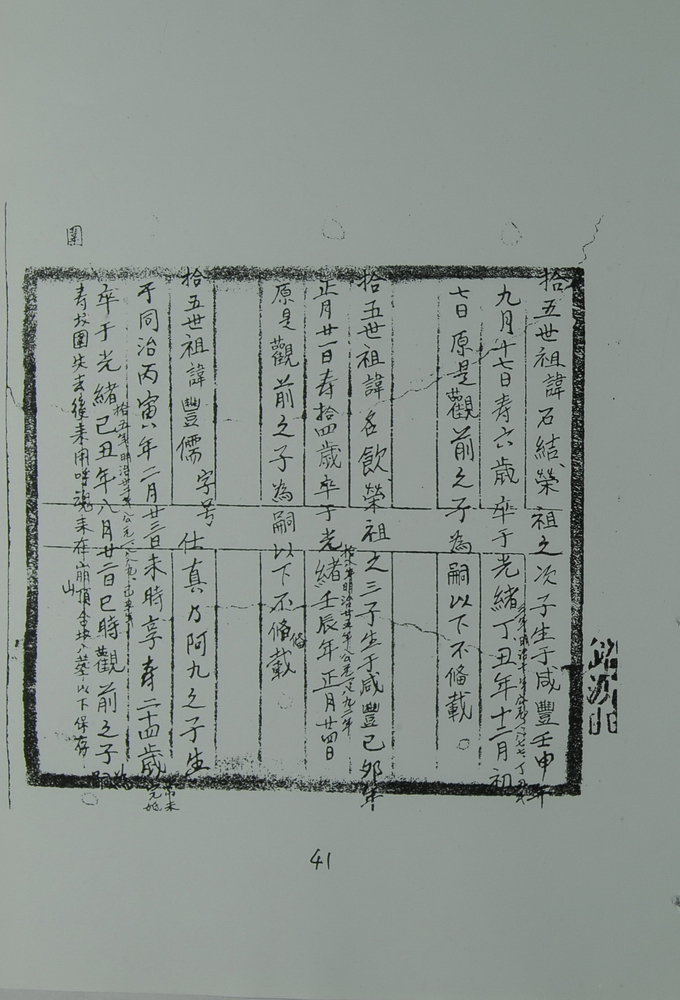 拾五世祖諱石結榮祖之次子生于咸豐壬申年
九月十七日寿六歲卒于光緒丁丑年十二月初
七日原是觀前之子為嗣以下不偹載
拾五世祖諱名飲榮祖之三子生于咸豐己卯年
正月廿一日寿拾四歲卒于光緒壬辰年正月廿四日
拾八年明治廿五年公元一八九二年
原是觀前之子為嗣以下不偹載
拾五世祖諱豐儒字号仕真乃阿九之子生
于同治丙寅八年二月廿三日未時享寿二十四歲
卒于光緒己丑年八月廿二日巳時觀前之子為嗣
寿坟圍失去後来用呼魂来在崩頂山
以下保存
圍
41